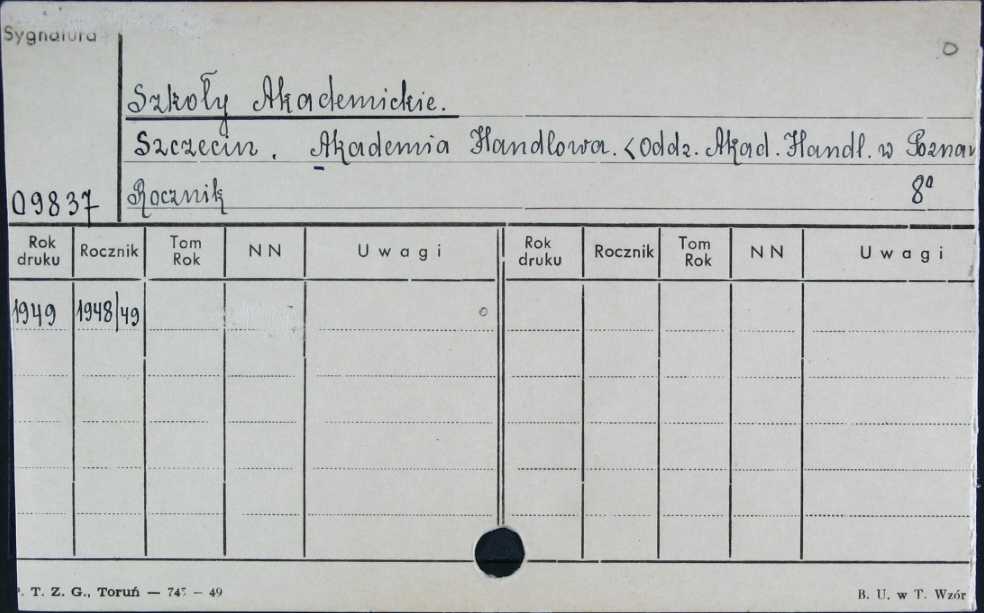 Sygnatura
Szkoły Akademickie.
Szczecin. Akademia Handlowa. <Oddz. Akad. Handl. w Poznan
09837 Rocznik 8°
Rok druku Rocznik Tom Rok NN Uwagi Rok druku Rocznik Tom Rok NN Uwagi
1949 1948/49
T. Z. G., Toruń — 745 — 49 B. U. w T. Wzór